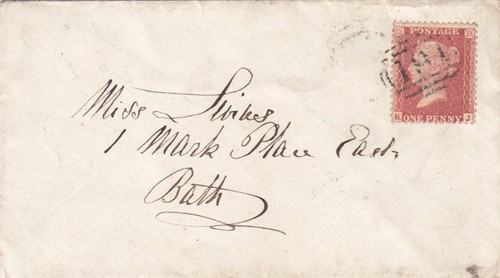 POSTAGE
ONE PENNY
K J
Miss
1 Mark Place East
Bath